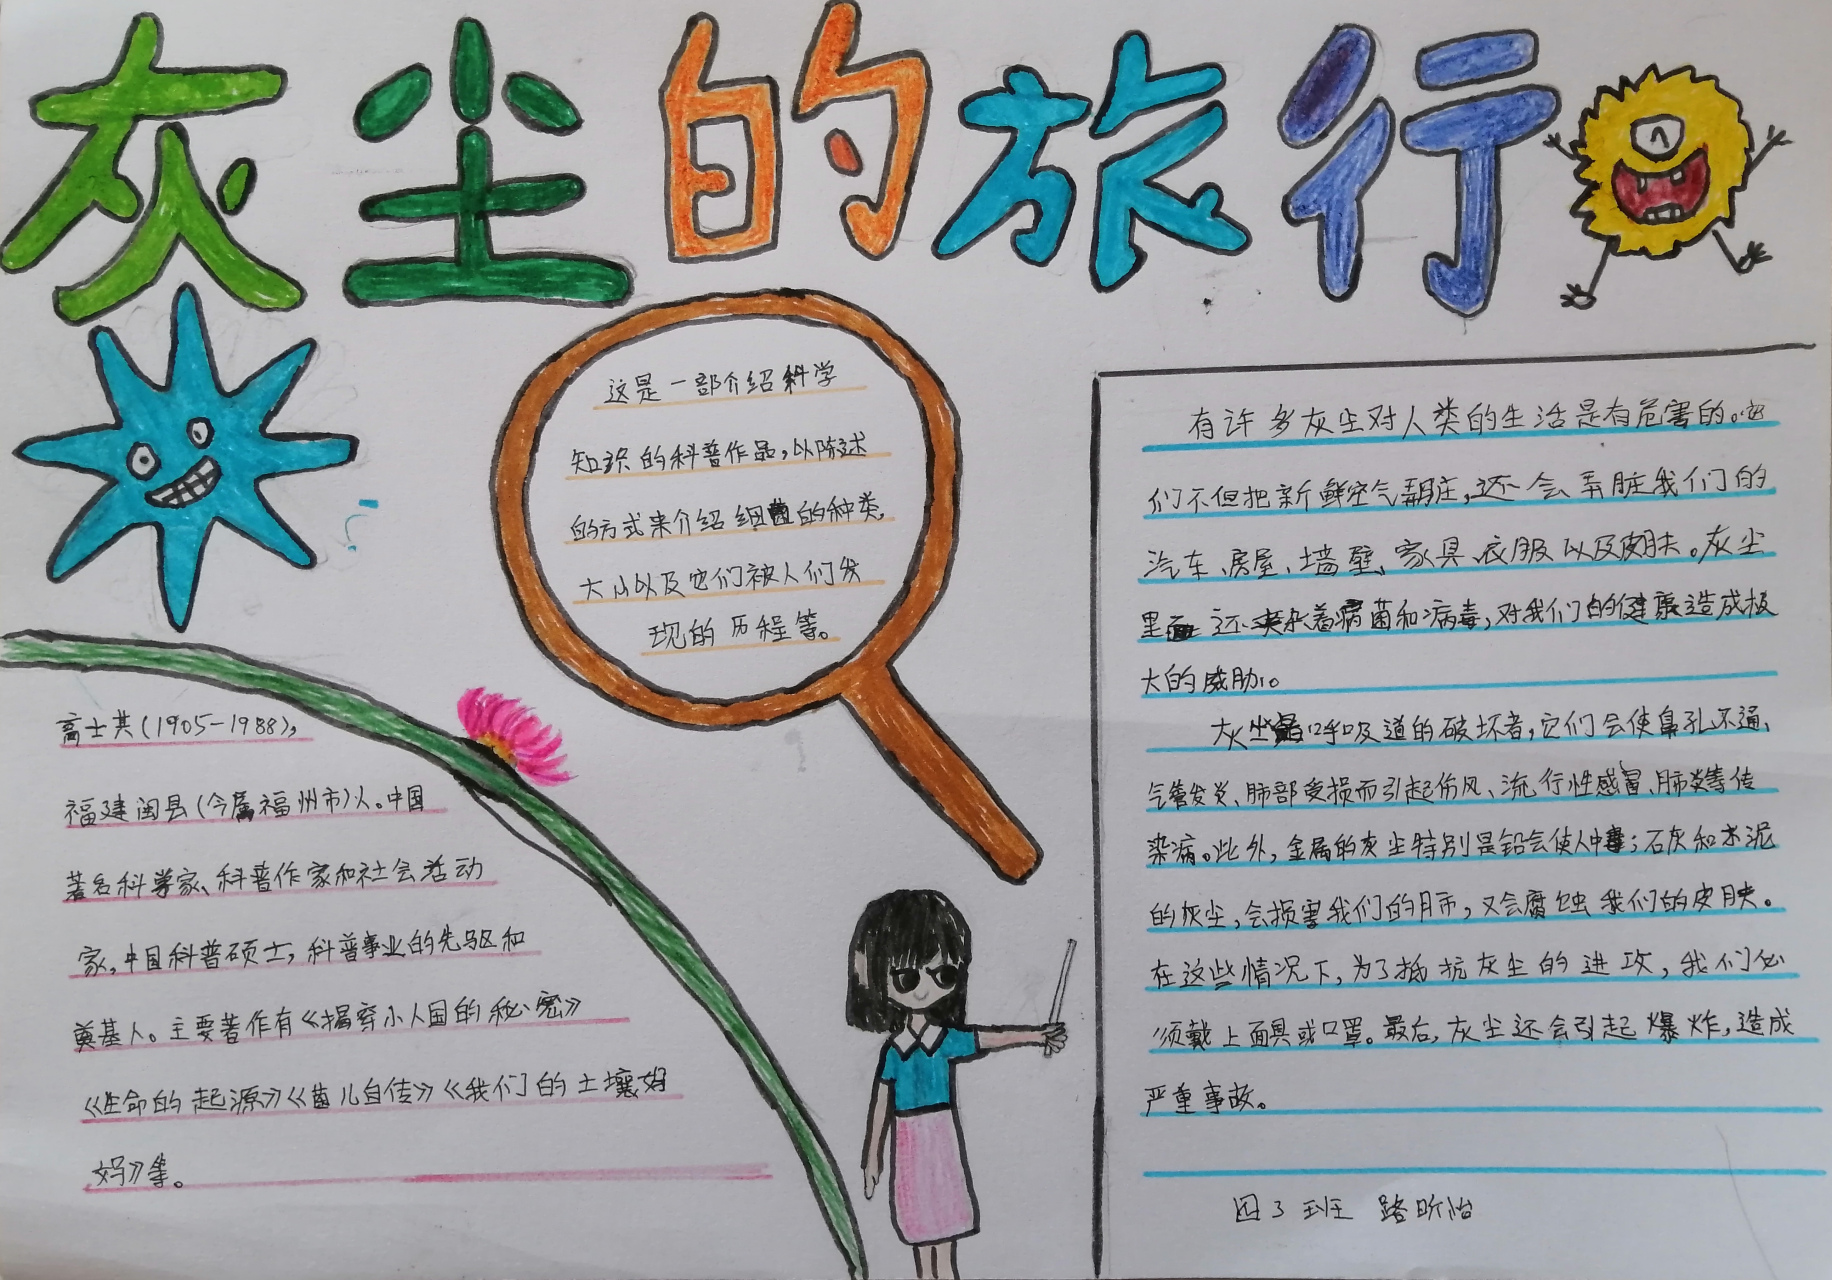 灰尘的旅行
这是一部介绍科学
知识的科普作品,以陈述
的方式来介绍细菌的种类,
大小以及它们被人们发
现的历程等。
高士其(1905-1988),
福建闽县(今属福州市)人。中国
著名科学家、科普作家和社会活动
家,中国科普硕士,科普事业的先驱和
奠基人。主要著作有《揭穿小人国的秘密》
《生命的起源》《菌儿自传》《我们的土壤妈
妈》等。
有许多灰尘对人类的生活是有危害的。它
们不但把新鲜空气弄脏,还会弄脏我们的
汽车、房屋、墙壁、家具、衣服以及皮肤。灰尘
里面还夹杂着病菌和病毒,对我们的健康造成极
大的威胁。
灰尘是呼吸道的破坏者,它们会使鼻孔不通、
气管发炎、肺部受损而引起伤风、流行性感冒、肺炎等传
染病。此外,金属的灰尘特别是铅会使人中毒;石灰和水泥
的灰尘,会损害我们的肺,又会腐蚀我们的皮肤。
在这些情况下,为了抵抗灰尘的进攻,我们必
须戴上面具或口罩。最后,灰尘还会引起爆炸,造成
严重事故。
四3班 路昕怡